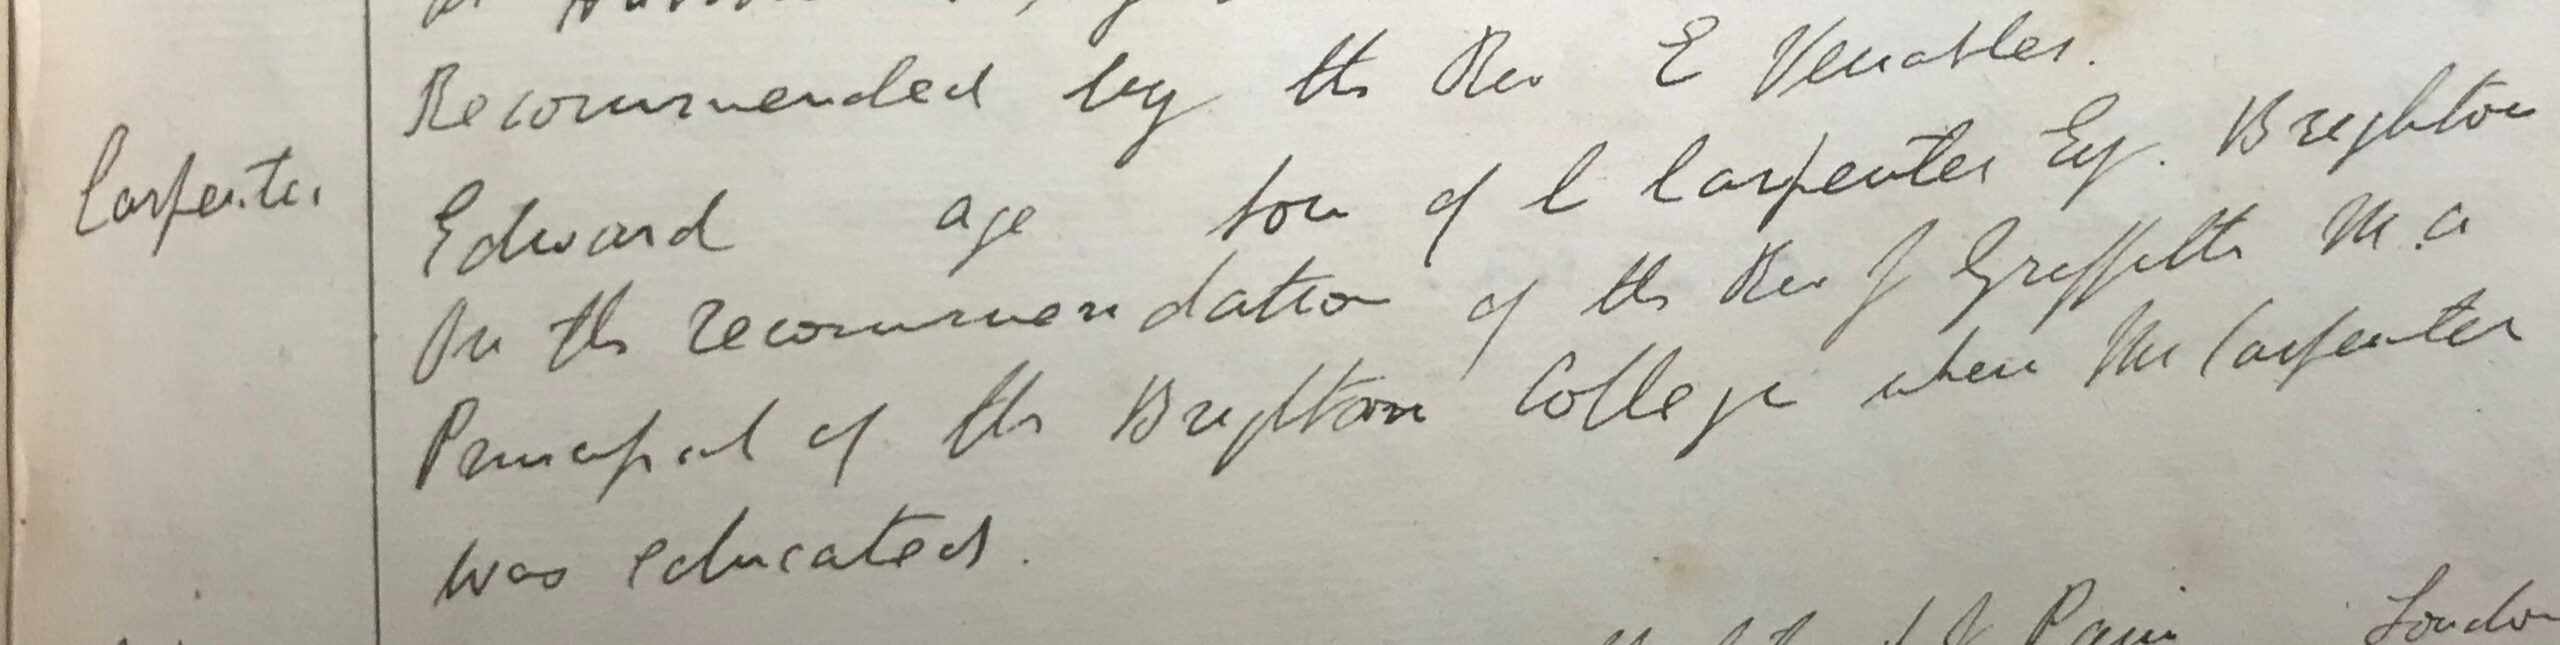 Recommended by the Rev E Venables.
Carpenter
Edward age son of C Carpenter Esq. Brighton
On the recommendation of the Rev J Griffith M.A
Principal of the Brighton College where Mr Carpenter
was educated.
London